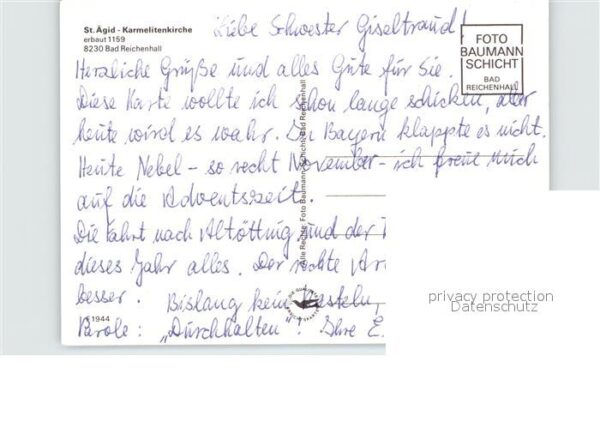 St. Ägid - Karmelitenkirche
erbaut 1159
8230 Bad Reichenhall
Liebe Schwester Giseltraud!
FOTO
BAUMANN
SCHICHT
BAD
REICHENHALL
Herzliche Grüße und alles Gute für Sie.
Diese Karte wollte ich schon lange schicken, aber
heute wird es wahr. In Bayern klappte es nicht.
Heute Nebel - so recht November - ich freue mich
auf die Adventszeit.
Die Fahrt nach Altötting und der
dieses Jahr alles. Der rechte Ar
besser. Bislang kein
Parole: "Durchhalten"! Ihre E.
Alle Rechte Foto Baumann Schicht Bad Reichenhall
1944
privacy protection
Datenschutz